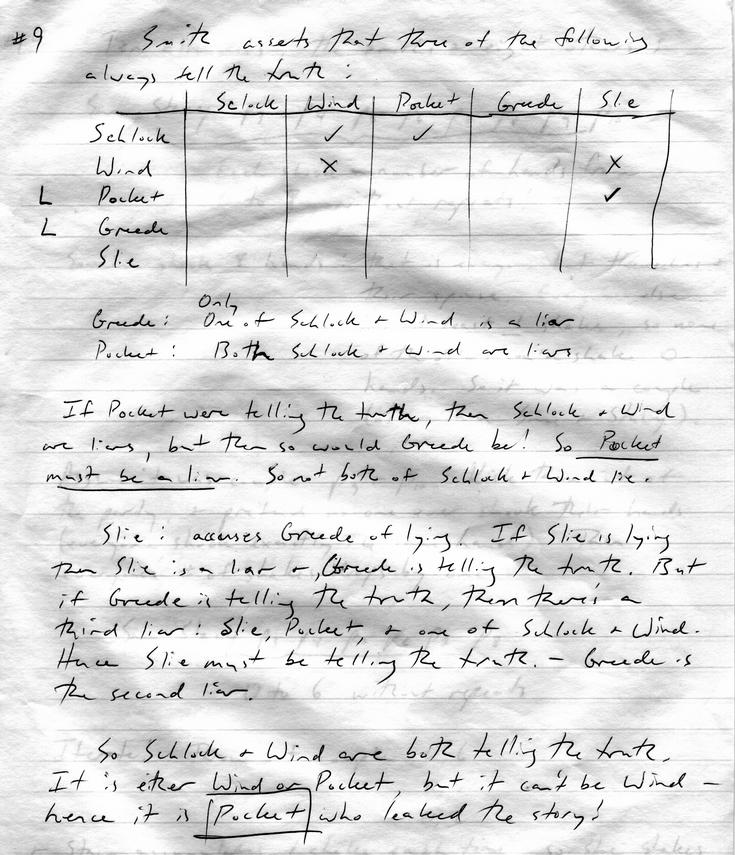 #9 Smith asserts that three of the following
always tell the truth:
Sclock Wind Pocket Greede Slie
Schlock ✓ ✓
Wind × ×
L Pocket ✓
L Greede
Slie
Only
Greede: One of Schlock + Wind is a liar
Pocket: Both Schlock + Wind are liars
If Pocket were telling the truth, then Schlock + Wind
are liars, but then so would Greede be! So Pocket
must be a liar. So not both of Schlock + Wind lie.
Slie: accuses Greede of lying. If Slie is lying
then Slie is a liar +, Greede is telling the truth. But
if Greede is telling the truth, then there's a
third liar: Slie, Pocket, + one of Schlock + Wind.
Hence Slie must be telling the truth. - Greede is
the second liar.
So Schlock + Wind are both telling the truth.
It is either Wind or Pocket, but it can't be Wind -
hence it is Pocket who leaked the story!